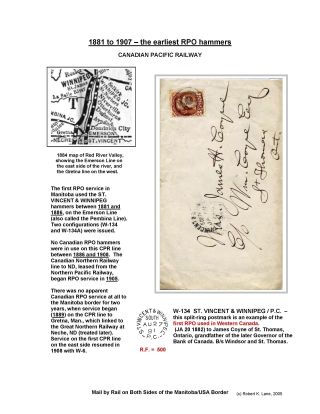 1881 to 1907 – the earliest RPO hammers
CANADIAN PACIFIC RAILWAY
WINNIPEG
T
Dominion City
EMERSON
Gretna
NECHE
ST. VINCENT
1884 map of Red River Valley,
showing the Emerson Line on
the east side of the river, and
the Gretna line on the west.
The first RPO service in
Manitoba used the ST.
VINCENT & WINNIPEG
hammers between 1881 and
1886, on the Emerson Line
(also called the Pembina Line).
Two configurations (W-134
and W-134A) were issued.
No Canadian RPO hammers
were in use on this CPR line
between 1886 and 1908. The
Canadian Northern Railway
line to ND, leased from the
Northern Pacific Railway,
began RPO service in 1905.
There was no apparent
Canadian RPO service at all to
the Manitoba border for two
years, when service began
(1889) on the CPR line to
Gretna, Man., which linked to
the Great Northern Railway at
Neche, ND (treated later).
Service on the first CPR line
on the east side resumed in
1908 with W-6.
Mrs. James H. Coyne
C/o Wm. Coyne Esq
St Thomas
Ont.
ST. VINCENT & WINNIPEG
SOUTH
AU 27
81
P.C.
R.F. = 500
W-134 ST. VINCENT & WINNIPEG / P.C. –
this split-ring postmark is an example of the
first RPO used in Western Canada.
(JA 20 1882) to James Coyne of St. Thomas,
Ontario, grandfather of the later Governor of the
Bank of Canada. B/s Windsor and St. Thomas.
Mail by Rail on Both Sides of the Manitoba/USA Border
(c) Robert K. Lane, 2005